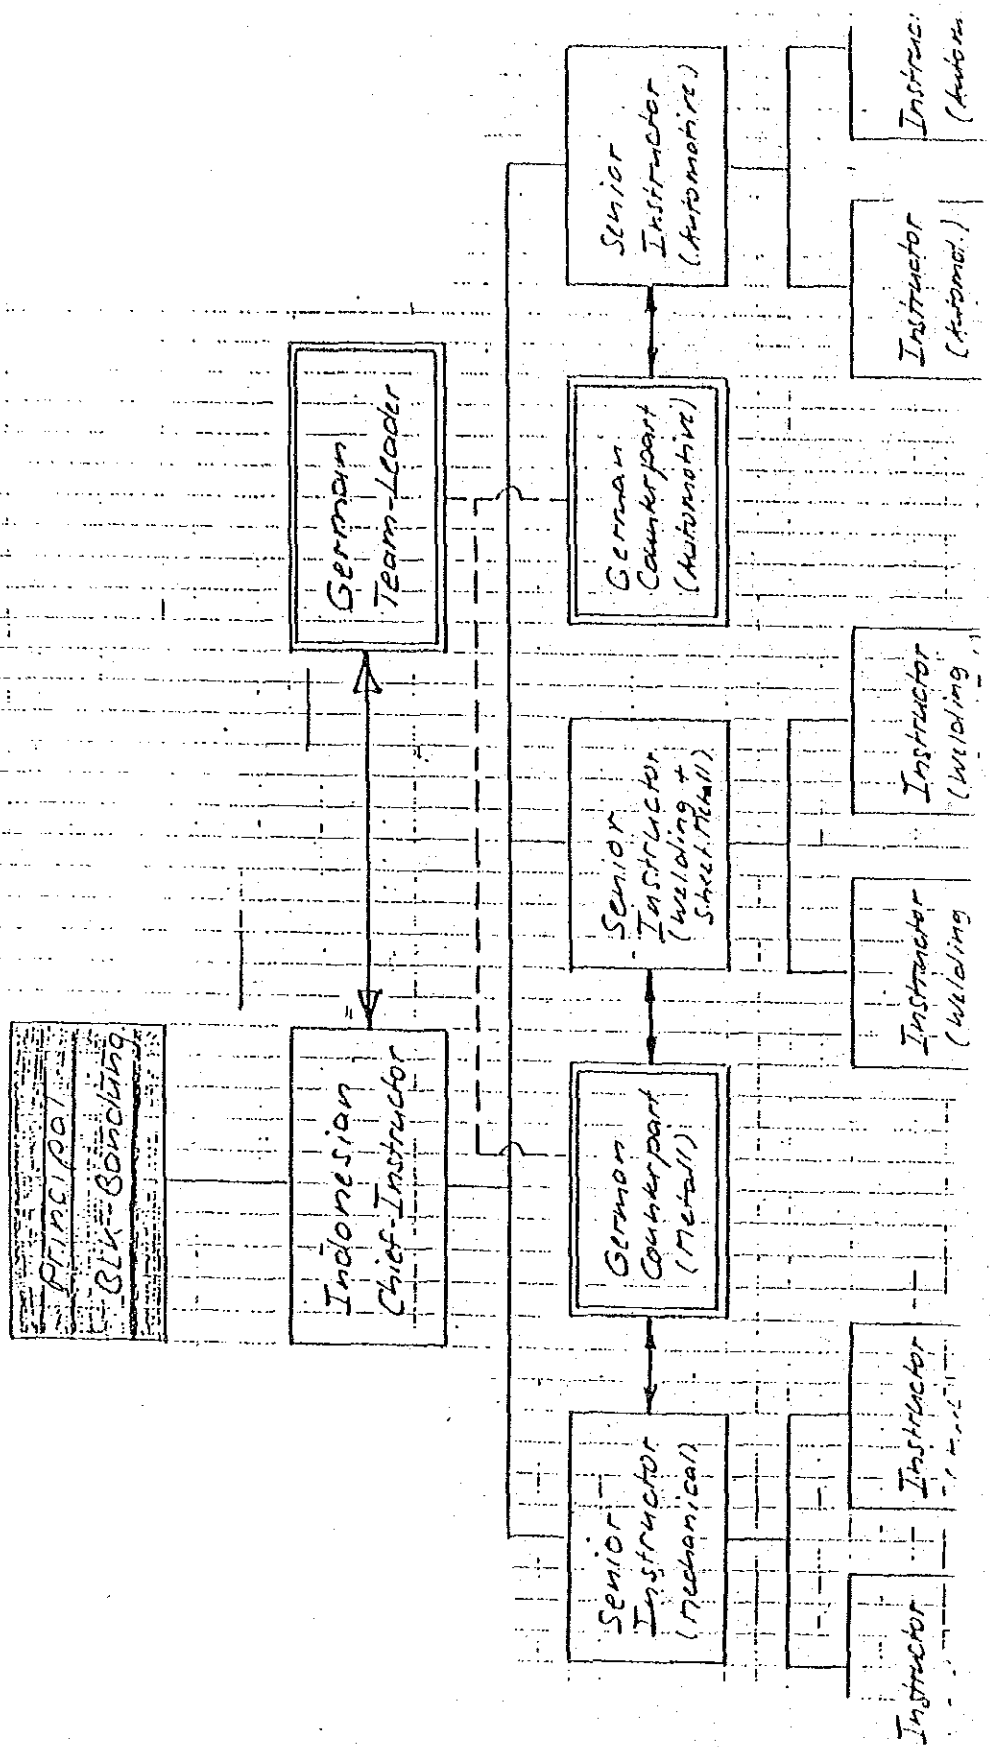 Principal
BLK-Bandung
Indonesian
Chief-Instructor
German
Team-Leader
Senior
Instructor
(Mechanical)
German
Counterpart
(Metall)
Senior
Instructor
(Welding +
Sheet.Metall)
German
Counterpart
(Automotive)
Senior
Instructor
(Automotive)
Instructor
Instructor
Instructor
(Welding
Instructor
(Welding
Instructor
(Automot.)
Instruc
(Autom